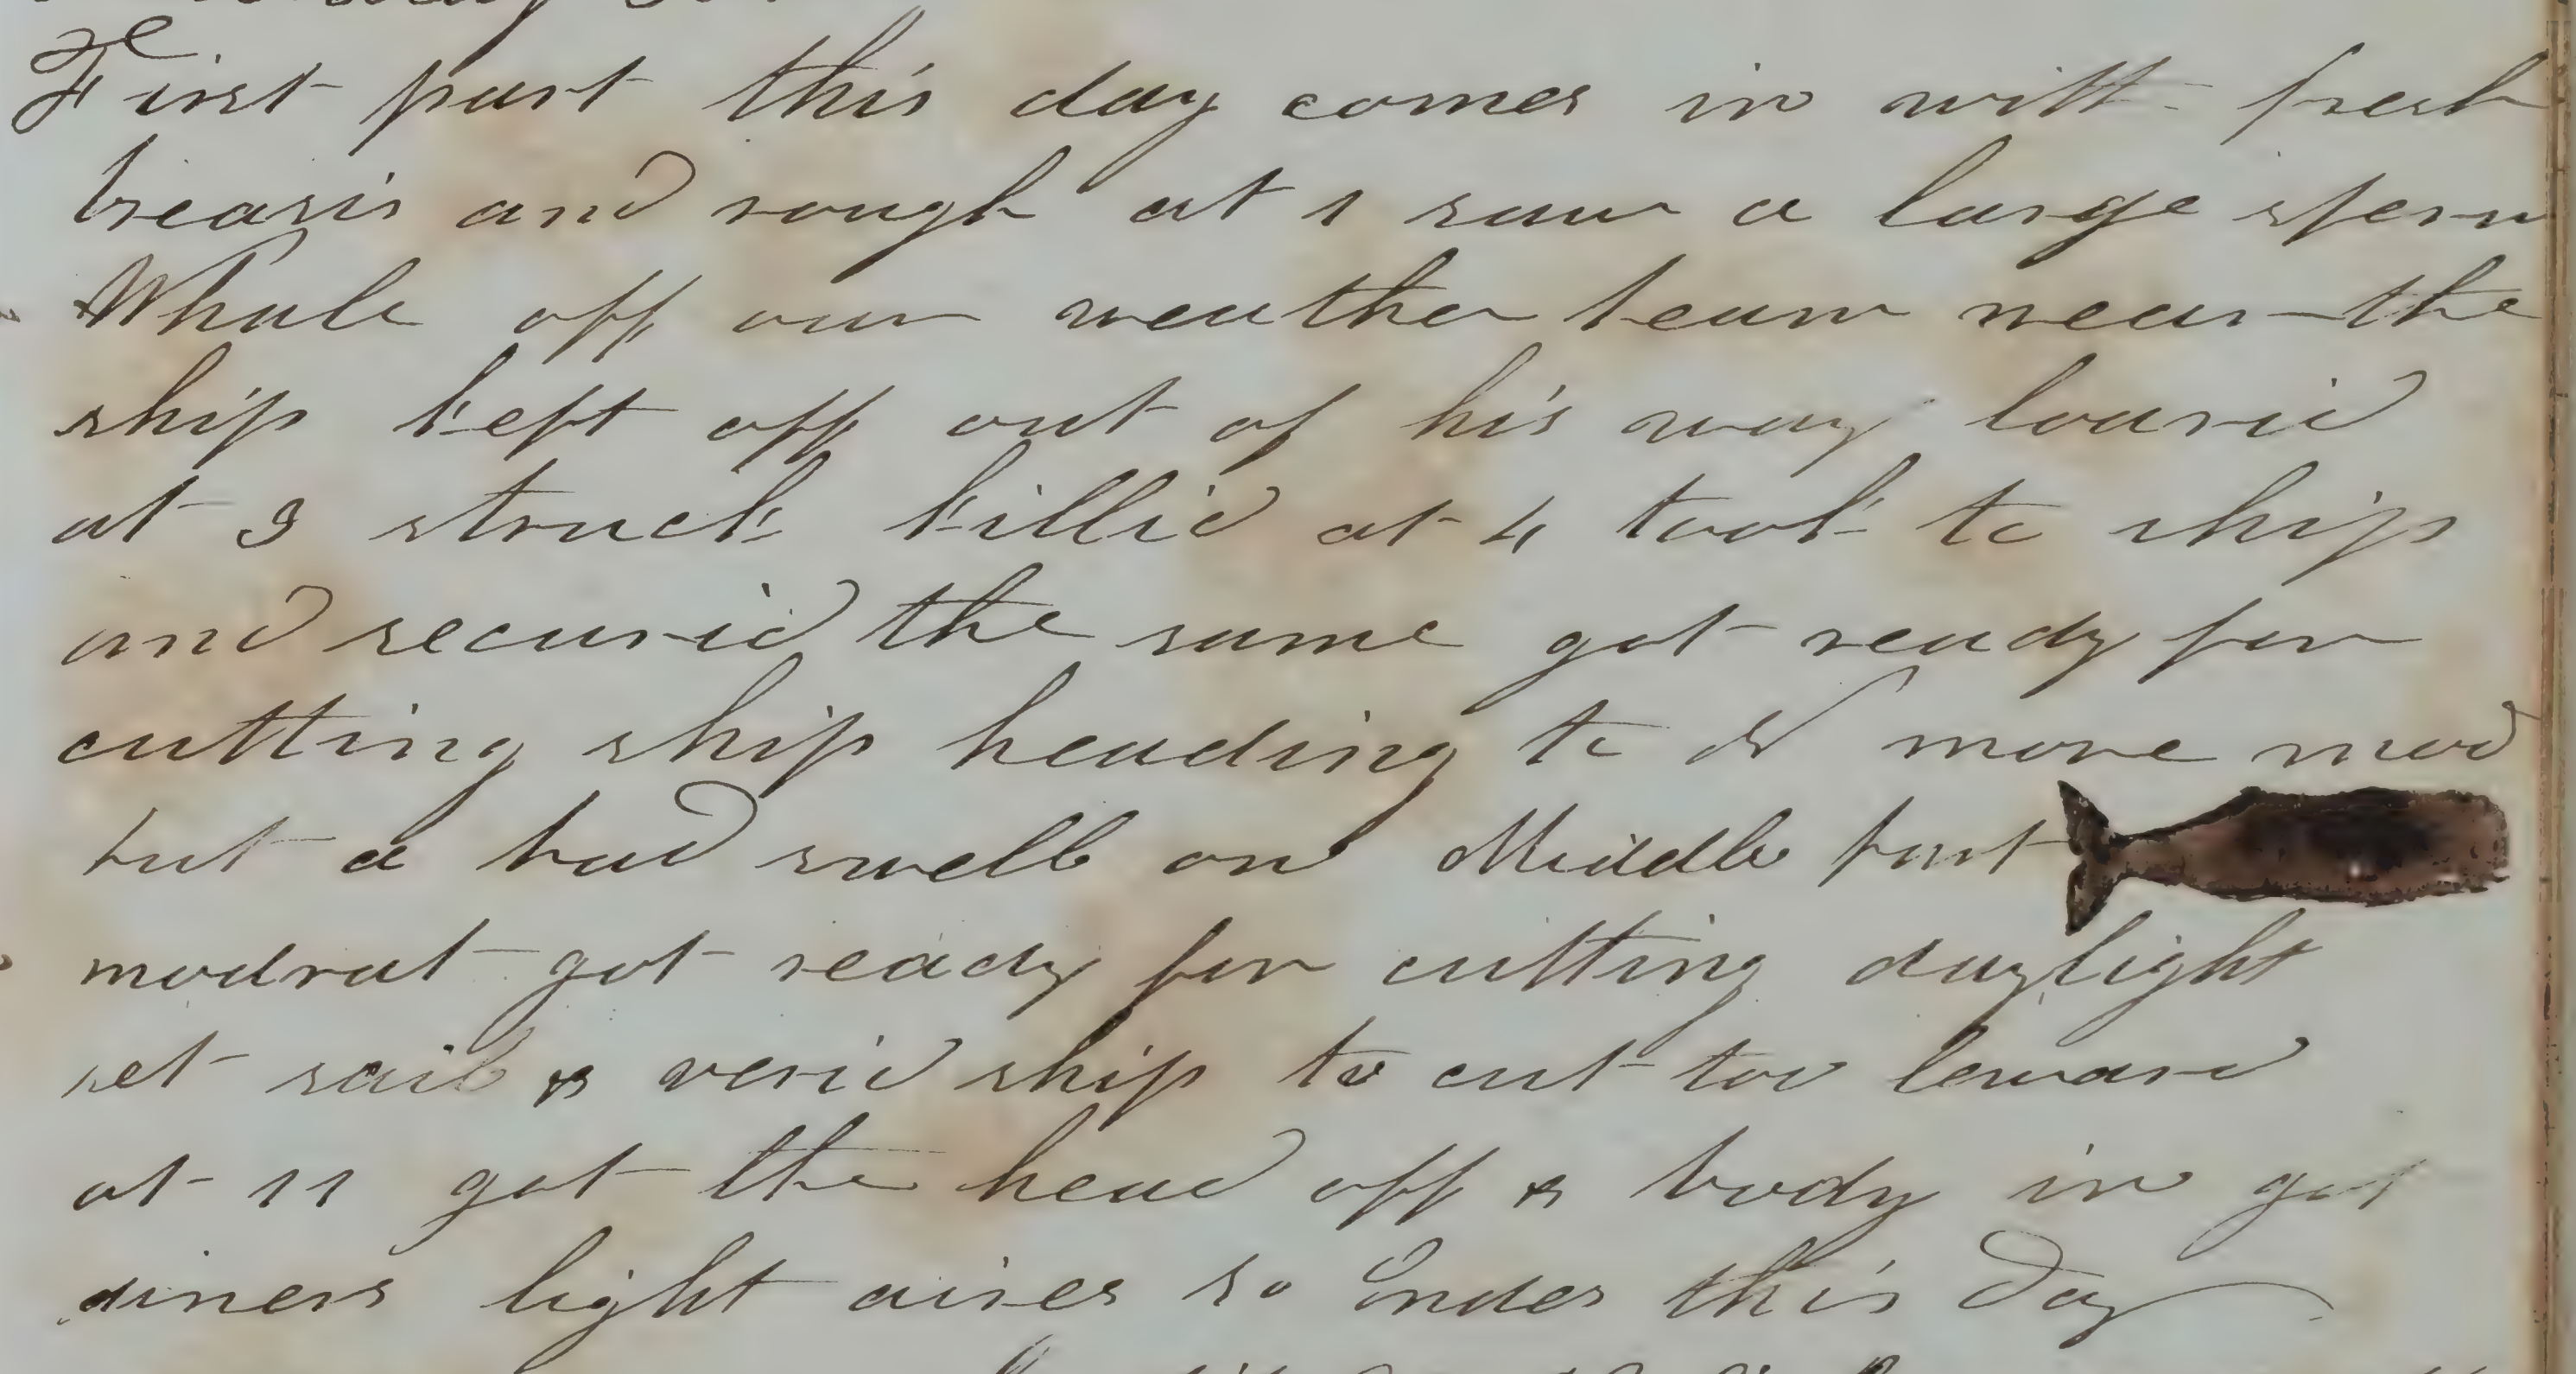 First part this day comes in with fresh
breasis and rough at 1 saw a large sperm
Whale off our weather beam near the
ship kept off out of his way lowrid
at 3 struck killid at 4 took to ship
and securid the same got ready for
cutting ship heading to N more mod
but a bad swell on Middle part
modrat got ready for cutting daylight
set sail & verid ship to cut too leward
at 11 got the head off & body in got
diners light aires so Endes this Day